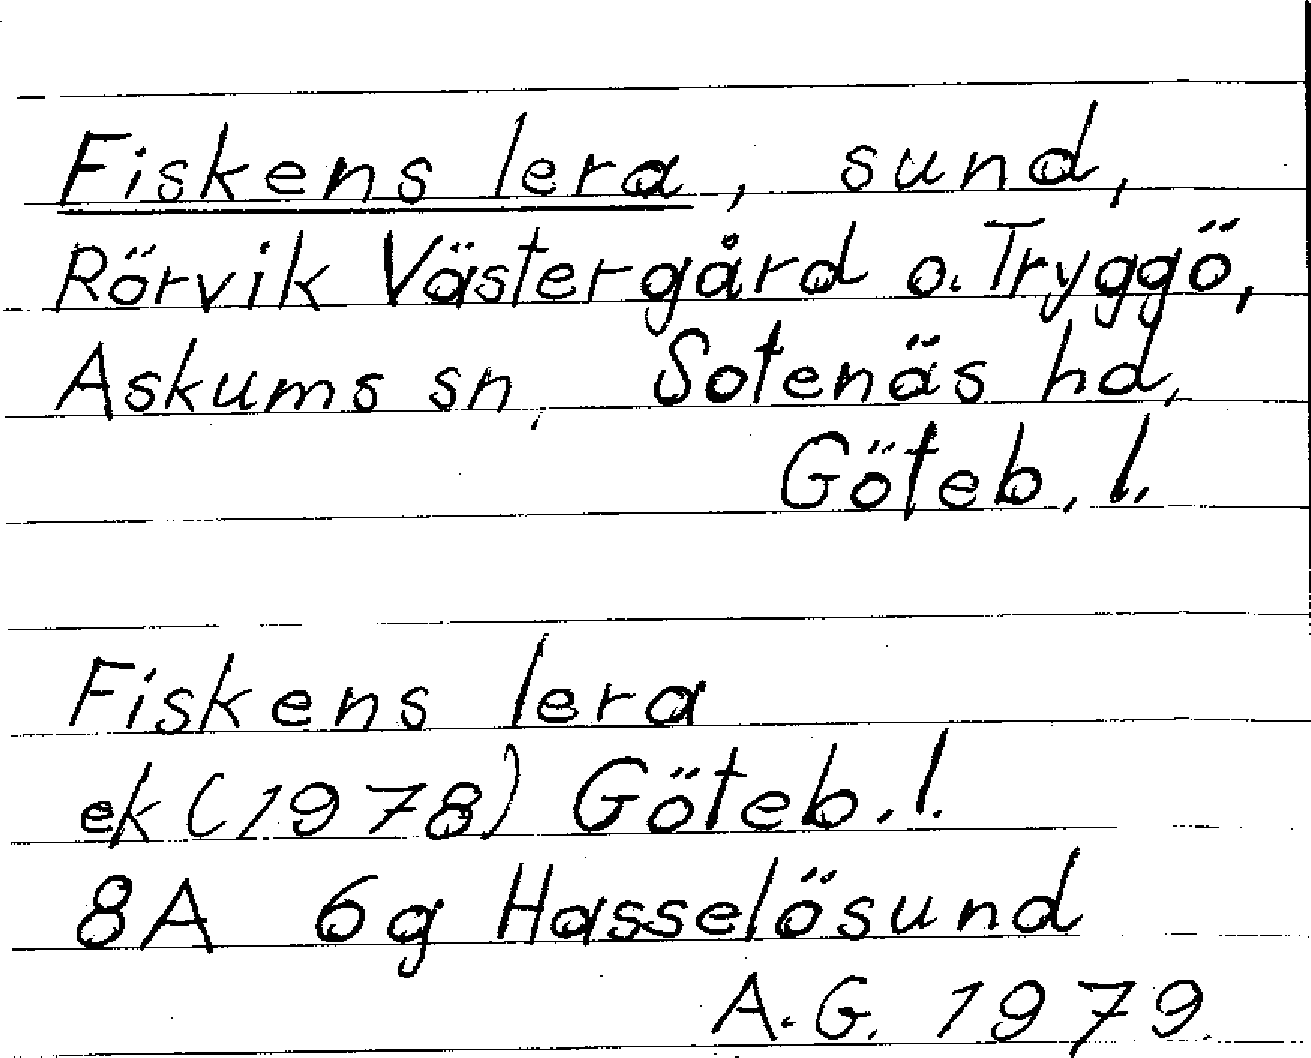 Fiskens lera, sund,
Rörvik Västergård o. Tryggö,
Askums sn, Sotenäs hd,
Göteb. l.
Fiskens lera
ek (1978) Göteb. l.
8A 6g Hasselösund
A.G. 1979.